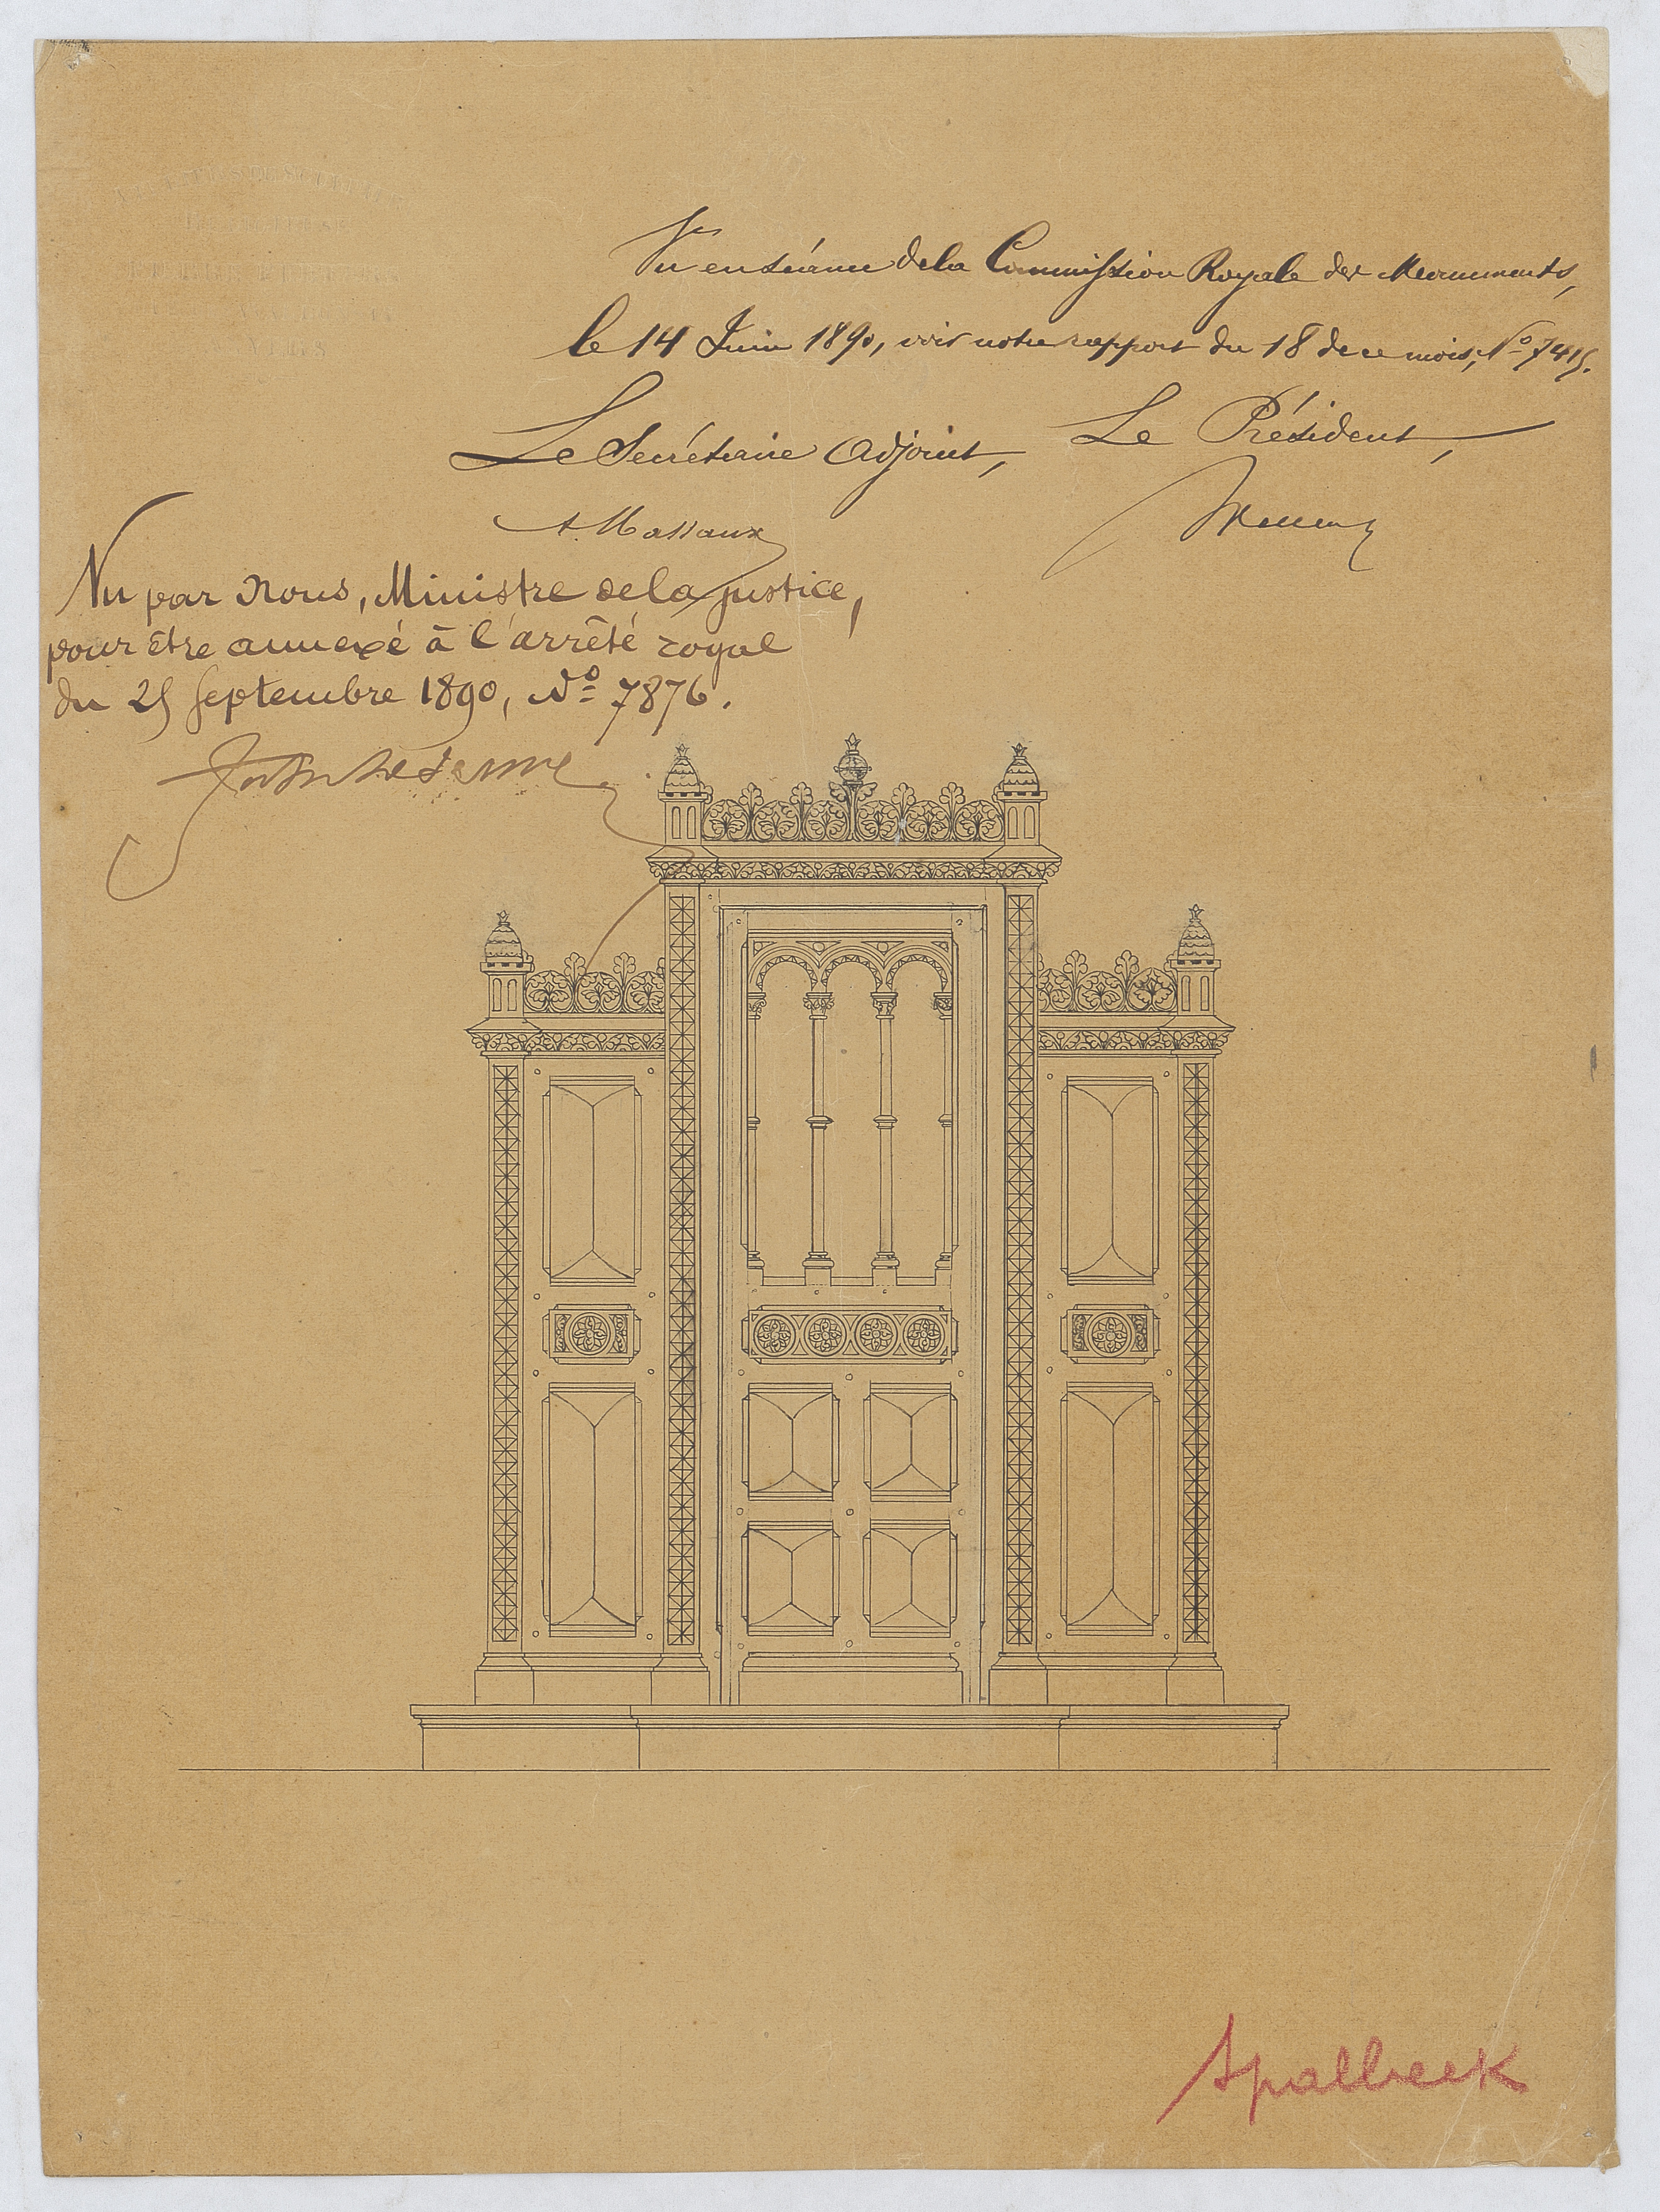 Vu en séance de la Commission Royale des Monuments,
le 14 Juin 1890, voir notre rapport du 18 de ce mois, No 7415.
Le Secrétaire Adjoint, Le Président,
A. Massaux
Vu par Nous, Ministre de la justice,
pour être annexé à l'arrêté royal
du 25 Septembre 1890, No 7876.
Spalbeek